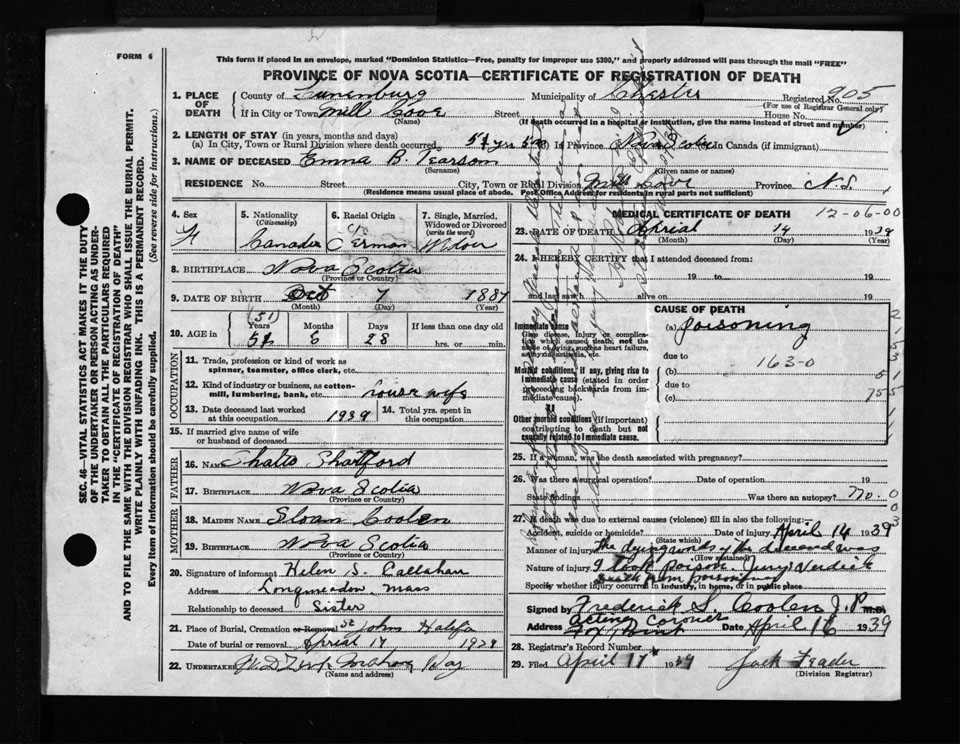 FORM 6
This form if placed in an envelope, marked "Dominion Statistics—Free, penalty for improper use $300," and properly addressed will pass through the mail "FREE"
PROVINCE OF NOVA SCOTIA—CERTIFICATE OF REGISTRATION OF DEATH
SEC. 46—VITAL STATISTICS ACT MAKES IT THE DUTY
OF THE UNDERTAKER OR PERSON ACTING AS UNDER-
TAKER TO OBTAIN ALL THE PARTICULARS REQUIRED
IN THE "CERTIFICATE OF REGISTRATION OF DEATH"
AND TO FILE THE SAME WITH THE DIVISION REGISTRAR WHO SHALL ISSUE THE BURIAL PERMIT.
WRITE PLAINLY WITH UNFADING INK. THIS IS A PERMANENT RECORD.
Every item of information should be carefully supplied. (See reverse side for instructions.)
1. PLACE OF DEATH County of Lunenburg Municipality of Chester Registered No. 905
(For use of Registrar General only)
If in City or Town Mill Cove Street House No.
(Name) (If death occurred in a hospital or institution, give the name instead of street and number)
2. LENGTH OF STAY (in years, months and days)
(a) In City, Town or Rural Division where death occurred In Province Nova Scotia In Canada (if immigrant)
3. NAME OF DECEASED Emma B. Pearson
(Surname) (Given name or names)
RESIDENCE No. Street City, Town or Rural Division Mill Cove Province N.S.
(Residence means usual place of abode. Post Office Address for residents in rural parts not sufficient)
4. Sex
5. Nationality (Citizenship) Canada
6. Racial Origin German
7. Single, Married, Widowed or Divorced (write the word)
8. BIRTHPLACE Nova Scotia
(Province or Country)
9. DATE OF BIRTH Oct 7 1887
(Month) (Day) (Year)
10. AGE in Years Months Days If less than one day old
(51)
6 28 hrs. or min.
OCCUPATION
11. Trade, profession or kind of work as spinner, teamster, office clerk, etc.
12. Kind of industry or business, as cotton-mill, lumbering, bank, etc. house wife
13. Date deceased last worked at this occupation 1939
14. Total yrs. spent in this occupation
15. If married give name of wife or husband of deceased
FATHER
16. NAME Shatford
17. BIRTHPLACE Nova Scotia
(Province or Country)
MOTHER
18. MAIDEN NAME Sloan Coolen
19. BIRTHPLACE Nova Scotia
(Province or Country)
20. Signature of informant Helen S. Callahan
Address Longmeadow, Mass
Relationship to deceased Sister
21. Place of Burial, Cremation or Removal St Johns Halifax
Date of burial or removal April 17 1939
22. UNDERTAKER
(Name and address)
MEDICAL CERTIFICATE OF DEATH 12-06-00
23. DATE OF DEATH April 14 1939
(Month) (Day) (Year)
24. I HEREBY CERTIFY that I attended deceased from:
19 to 19
and last saw h alive on 19
CAUSE OF DEATH
Immediate cause
Give disease, injury or complication which caused death, not the mode of dying, such as heart failure, asphyxia, asthenia, etc.
(a) Poisoning
due to
163-0
Morbid conditions, if any, giving rise to immediate cause (stated in order proceeding backwards from immediate cause).
(b)
due to
(c)
II
Other morbid conditions (if important) contributing to death but not causally related to immediate cause.
25. If a woman, was the death associated with pregnancy?
26. Was there a surgical operation? Date of operation 19
State findings Was there an autopsy? no.
27. If death was due to external causes (violence) fill in also the following:
Accident, suicide or homicide? Date of injury April 14 1939
(State which)
Manner of injury the dying words of the deceased was
(How sustained)
Nature of injury I took poison. Jury's Verdict
death from poisoning
Specify whether injury occurred in industry, in home, or in public place
Signed by Frederick S. Coolen J.P. M.D.
acting Coroner
Address Fox Point Date April 16 1939
28. Registrar's Record Number
29. Filed April 17 1939
(Division Registrar)